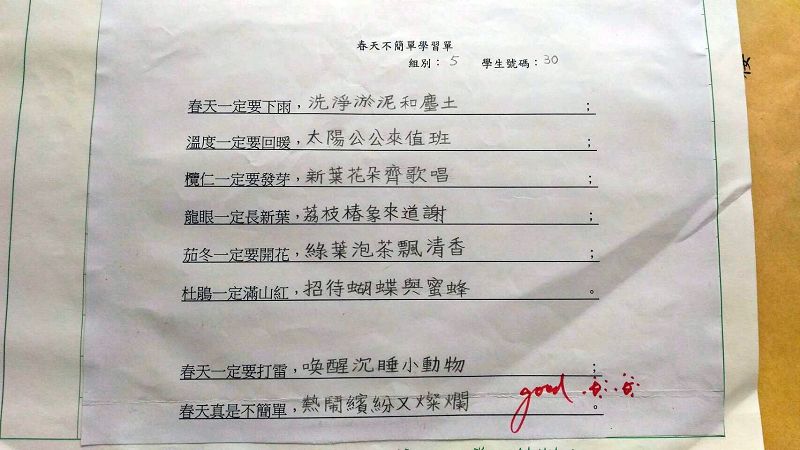 春天不簡單學習單
組別：5 學生號碼：30
春天一定要下雨，洗淨淤泥和塵土；
溫度一定要回暖，太陽公公來值班；
欖仁一定要發芽，新葉花朵齊歌唱；
龍眼一定長新葉，荔枝椿象來道謝；
茄冬一定要開花，綠葉泡茶飄清香；
杜鵑一定滿山紅，招待蝴蝶與蜜蜂。
春天一定要打雷，喚醒沉睡小動物；
春天真是不簡單，熱鬧繽紛又燦爛。
good